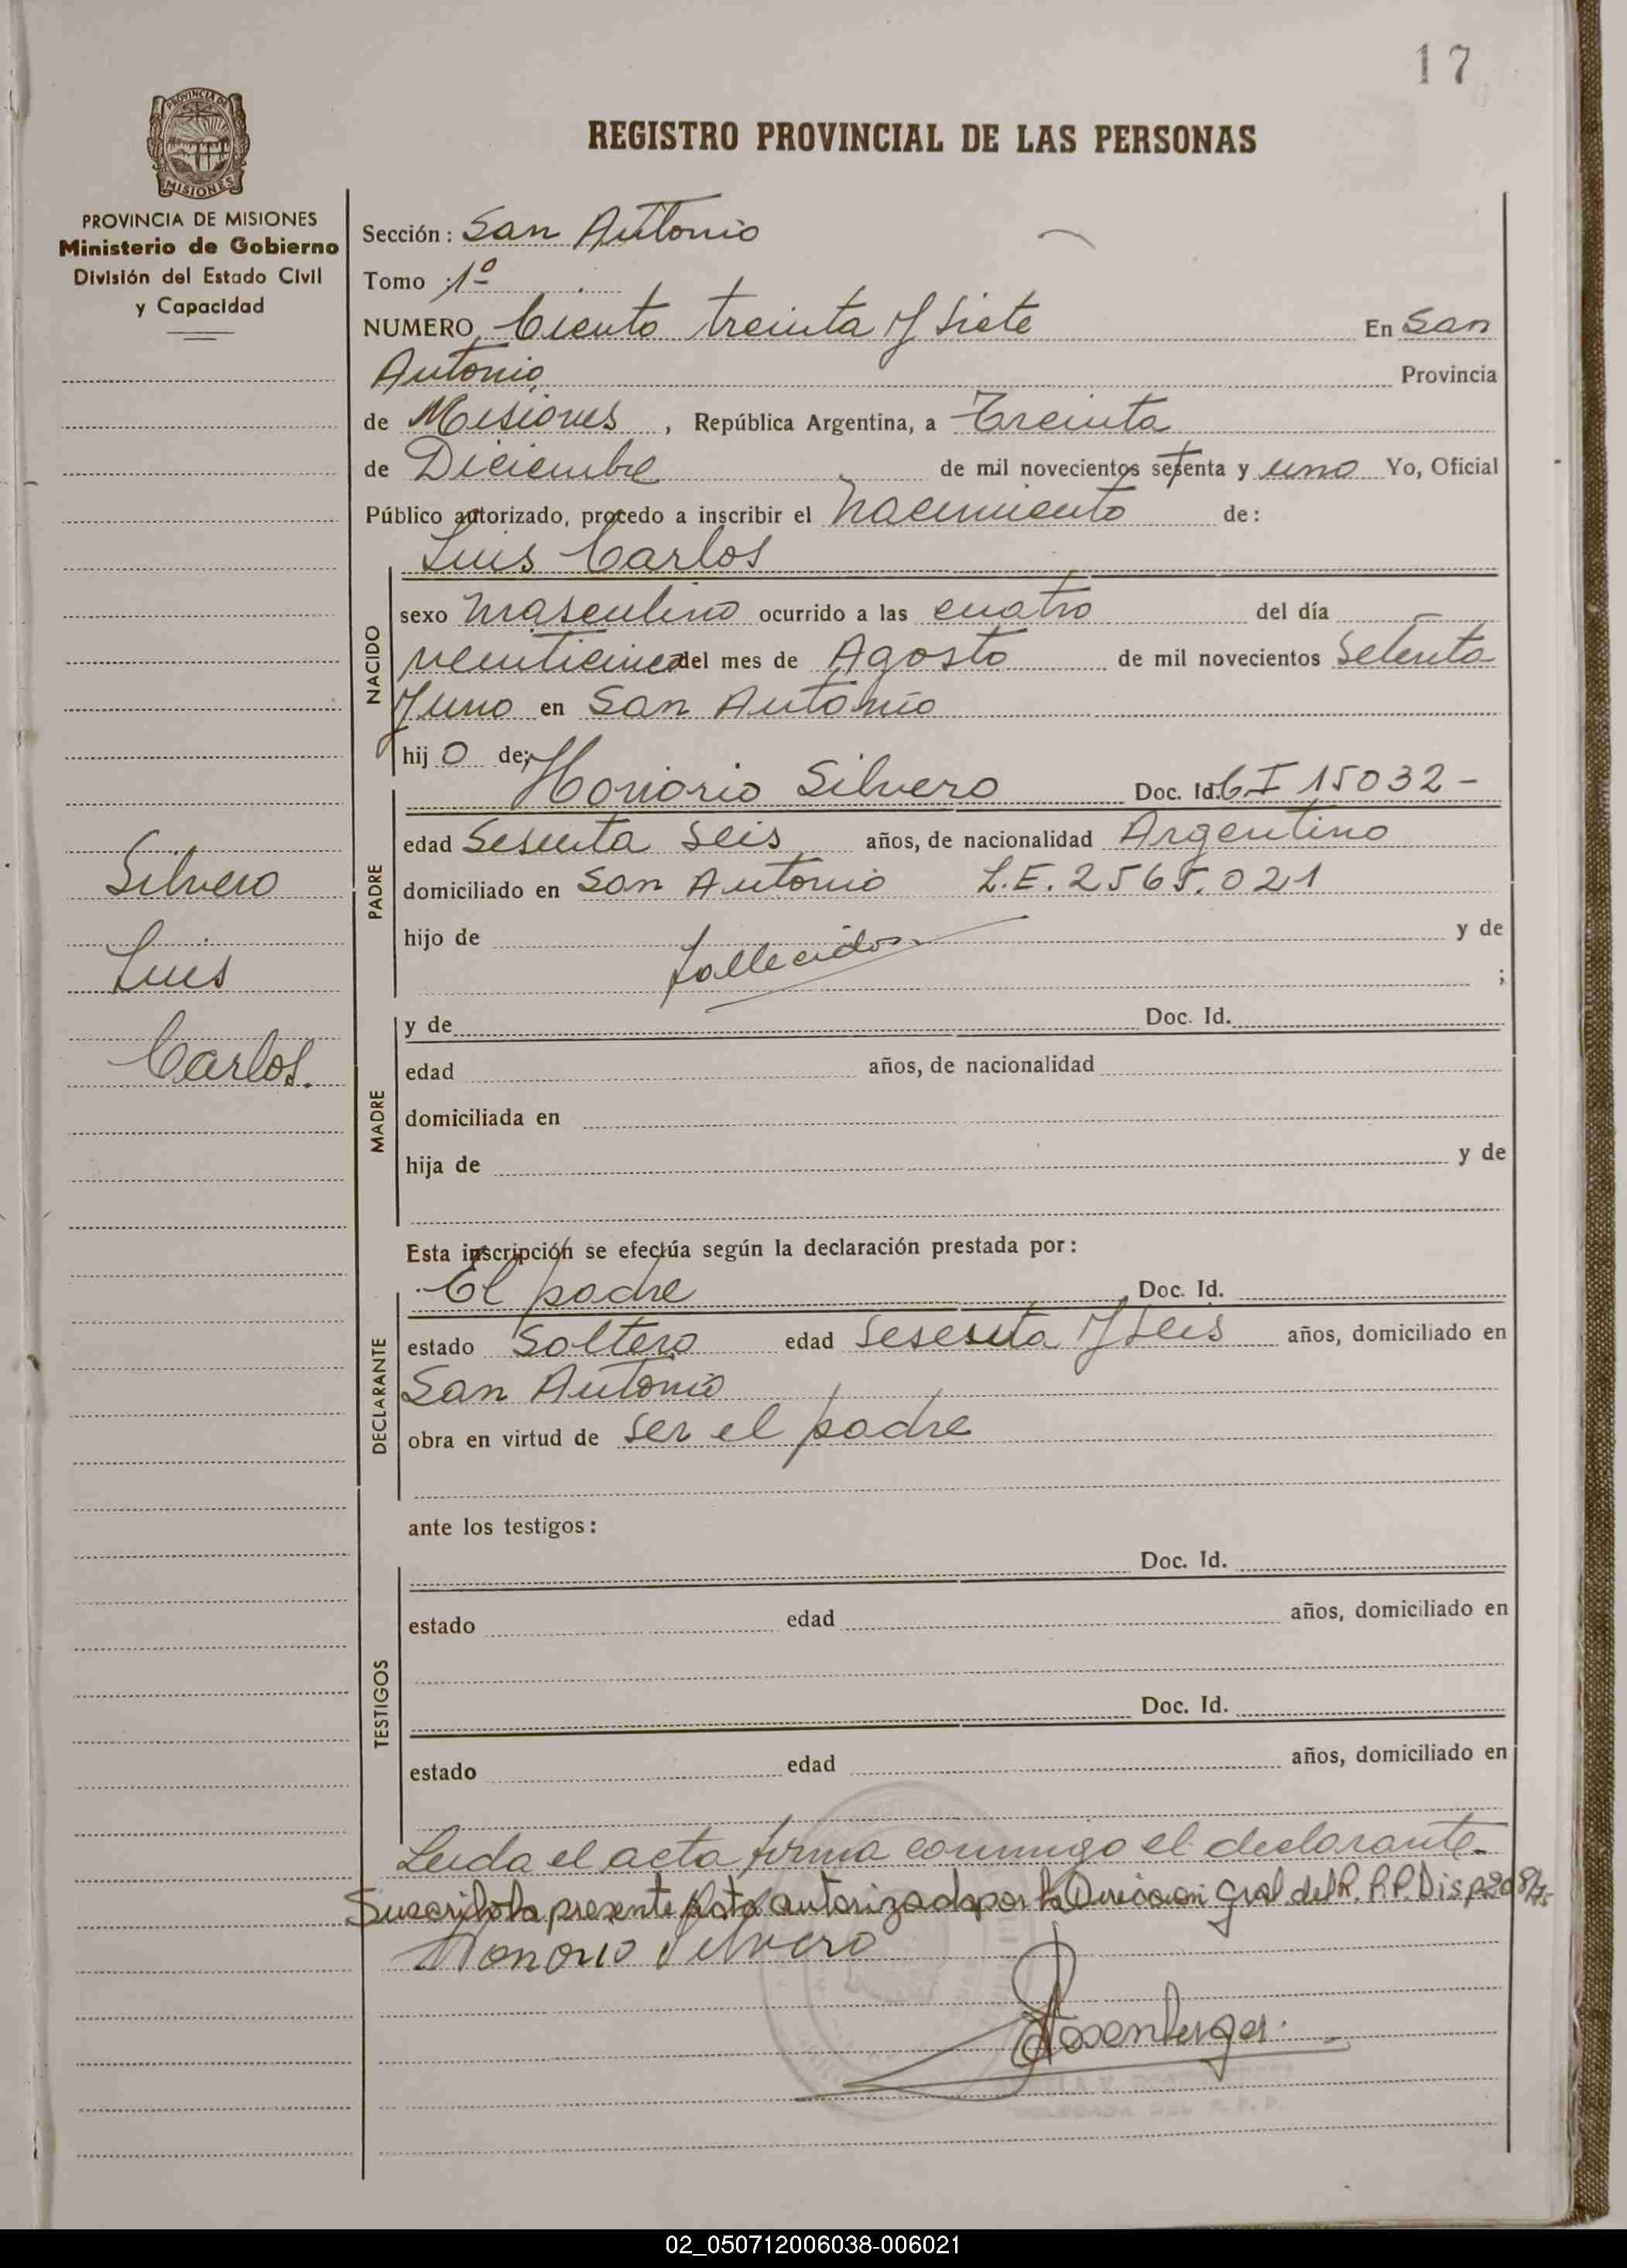 17
PROVINCIA DE
MISIONES
REGISTRO PROVINCIAL DE LAS PERSONAS
PROVINCIA DE MISIONES
Ministerio de Gobierno
División del Estado Civil
y Capacidad
Sección: San Antonio
Tomo 1º
NUMERO Ciento treinta y Siete En San
Antonio Provincia
de Misiones, República Argentina, a Treinta
de Diciembre de mil novecientos setenta y uno Yo, Oficial
Público autorizado, procedo a inscribir el Nacimiento de:
Luis Carlos
NACIDO
sexo masculino ocurrido a las cuatro del día
veinticinco del mes de Agosto de mil novecientos Setenta
y uno en San Antonio
hij o de:
PADRE
Honorio Silvero Doc. Id. C I 15032-
edad Sesenta seis años, de nacionalidad Argentino
domiciliado en San Antonio L.E. 2565.021
hijo de fallecidos y de
;
Silvero
Luis
Carlos.
MADRE
y de Doc. Id.
edad años, de nacionalidad
domiciliada en
hija de y de
Esta inscripción se efectúa según la declaración prestada por:
DECLARANTE
El padre Doc. Id.
estado Soltero edad Sesenta y Seis años, domiciliado en
San Antonio
obra en virtud de ser el padre
ante los testigos:
TESTIGOS
Doc. Id.
estado edad años, domiciliado en
Doc. Id.
estado edad años, domiciliado en
Leida el acta firma conmigo el declarante.
Suscribo la presente Acta autorizada por la Direccion Gral del R.P.P. Disp.
Honorio Silvero
Rosenberger
02_050712006038-006021